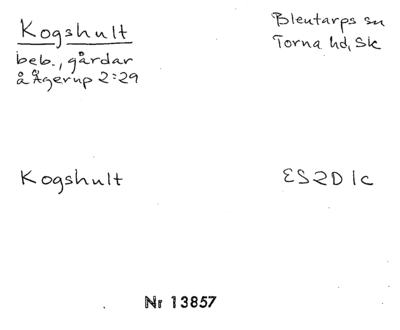 Kogshult
Bleutarps sn
beb., gårdar
Torna hd, Sk
å Ågerup 2:29
Kogshult
ES2D1c
Nr 13857